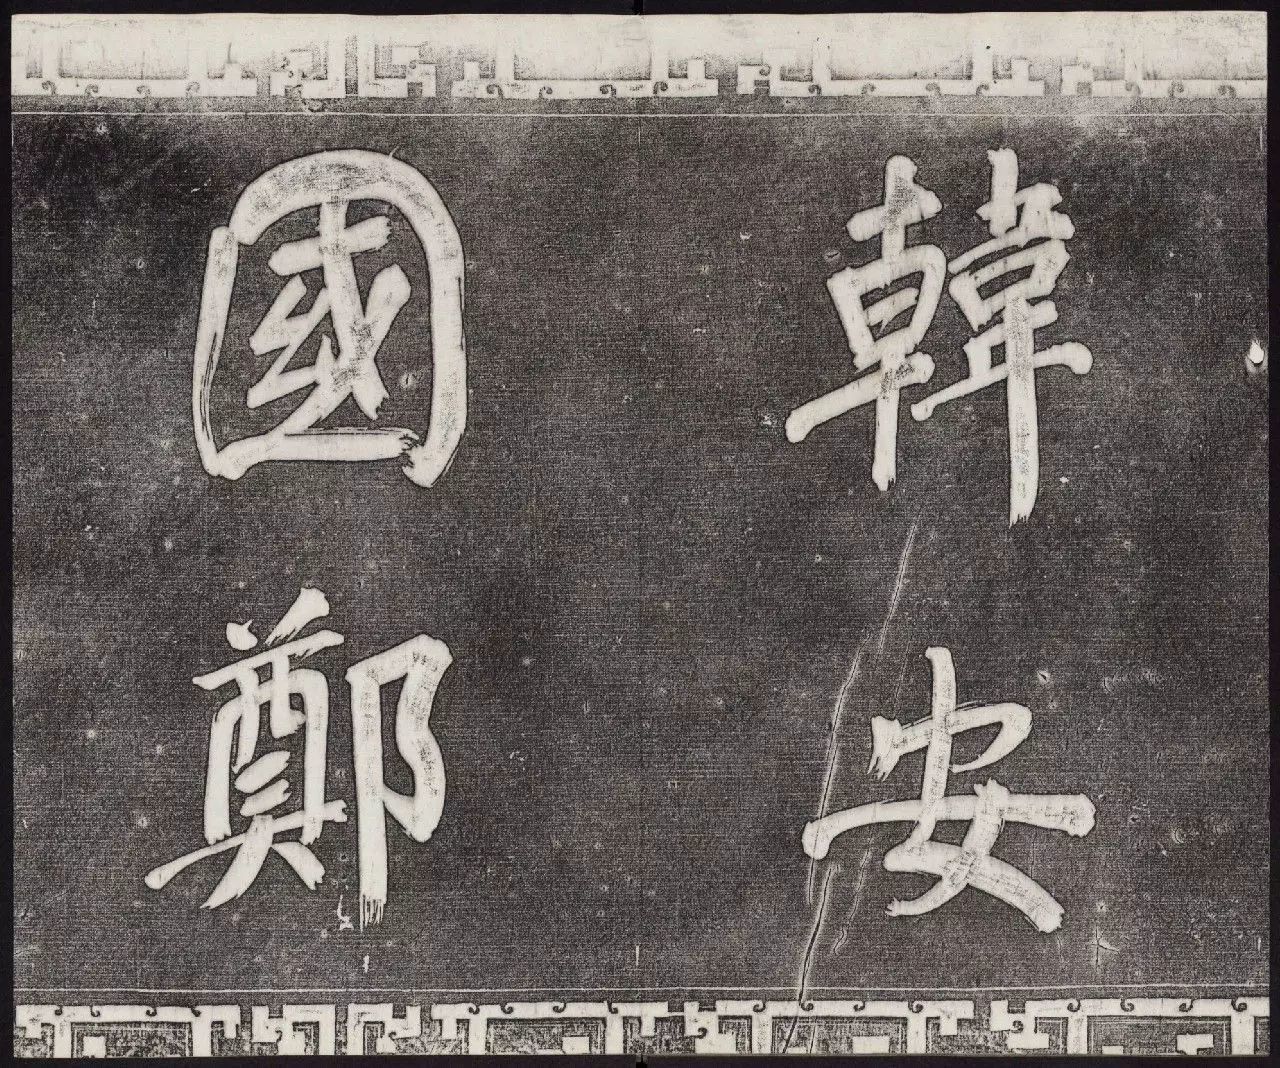 韓安
國鄭